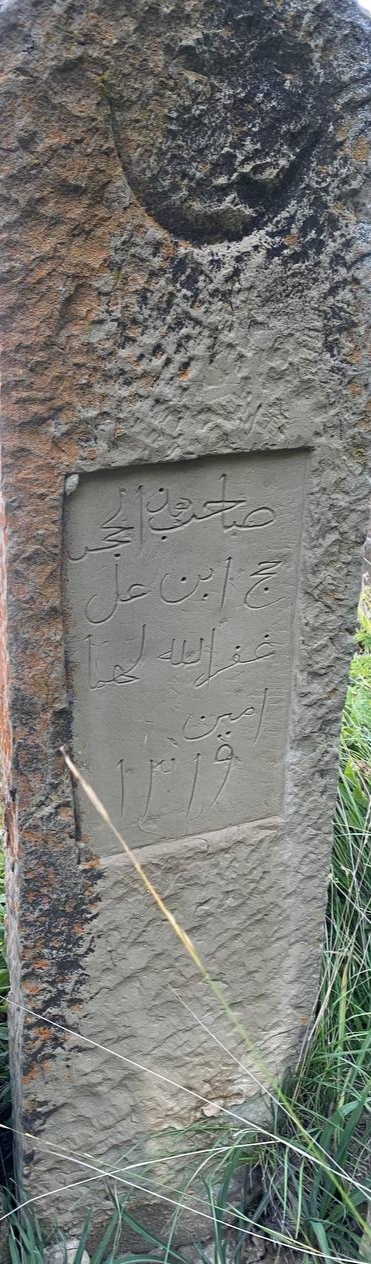 صاحب هذ الحجر
حج ابن عل
غفر الله لهما
امين
١٣١٩